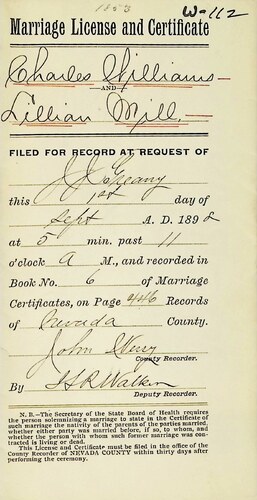 1853
W-112
Marriage License and Certificate
Charles Williams
AND
Lillian Mill.
FILED FOR RECORD AT REQUEST OF
J. J. Greany
this 1st day of
Sept A. D. 1892
at 5 min. past 11
o'clock A M., and recorded in
Book No. 6 of Marriage
Certificates, on Page 446 Records
of Nevada County.
John
County Recorder.
By Walker
Deputy Recorder.
N. B.—The Secretary of the State Board of Health requires
the person solemnizing a marriage to state in the Certificate of
such marriage the nativity of the parents of the parties married,
whether either party was married before, if so, to whom, and
whether the person with whom such former marriage was con-
tracted is living or dead.
This License and Certificate must be filed in the office of the
County Recorder of NEVADA COUNTY within thirty days after
performing the ceremony.